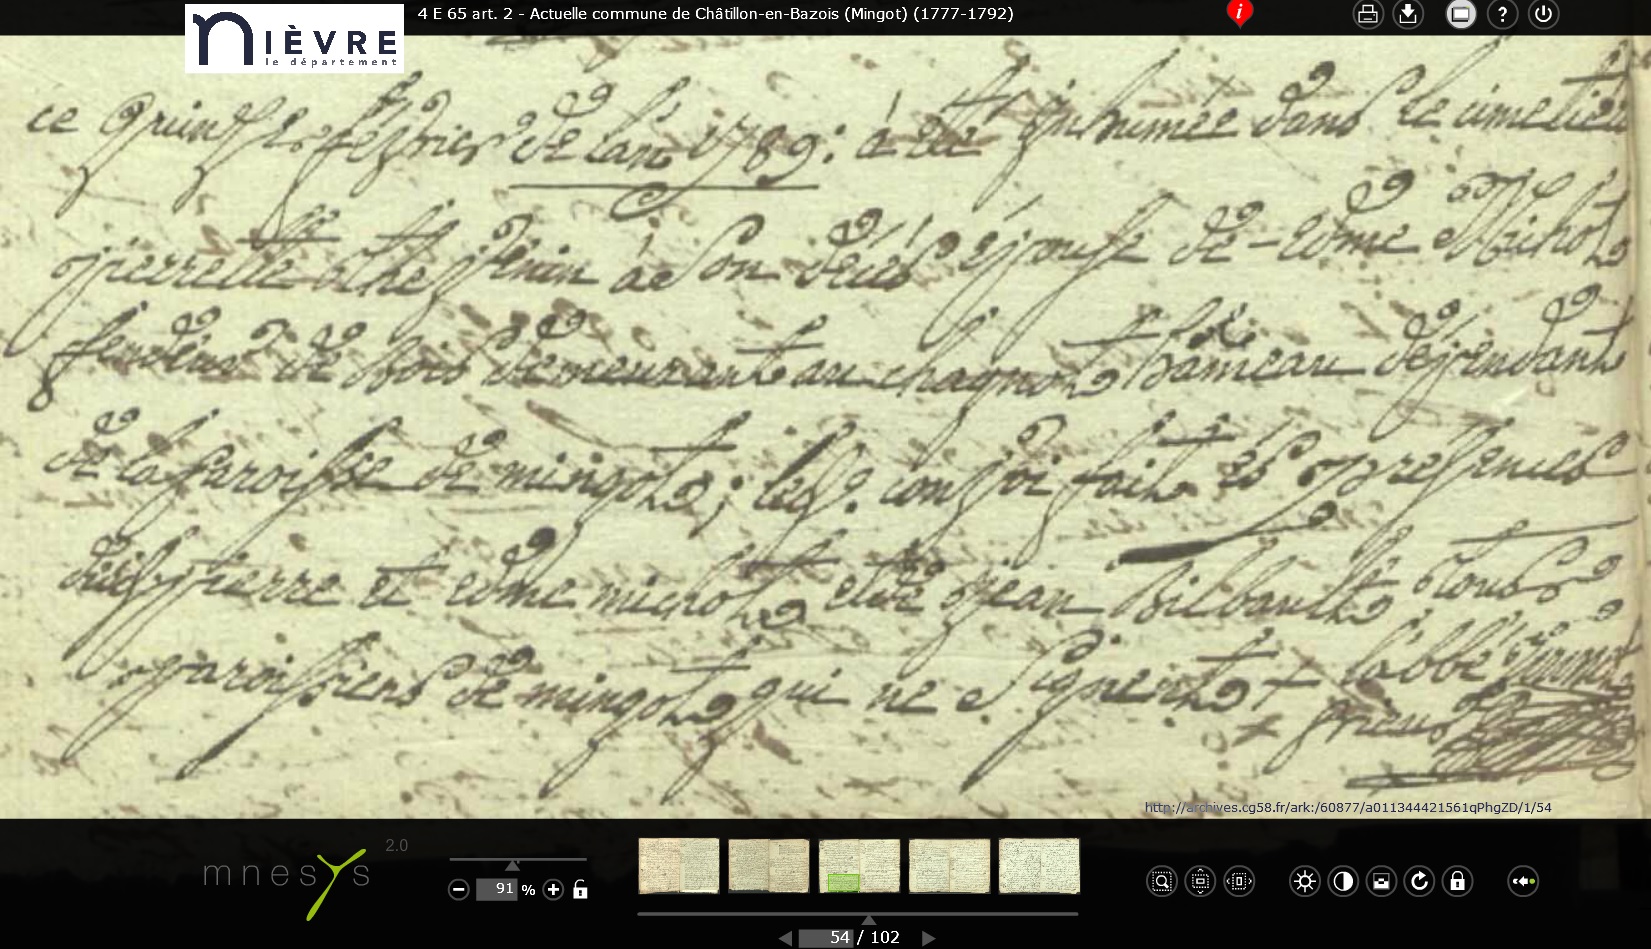 4 E 65 art. 2 - Actuelle commune de Châtillon-en-Bazois (Mingot) (1777-1792)
nIÈVRE
le département
ce quinze fevrier de lan 1789: à été inhumée dans le cimetiere
pierrette thevenin à son décès épouse de edme michot
fendeur de bois demeurant au chagnot hameau dependant
de la paroisse de mingot; led. convoi fait és presences
dud. pierre et edme michot et de jean bilbault tous
paroissiens de mingot qui ne signent + l'abbé
prieur
http://archives.cg58.fr/ark:/60877/a011344421561qPhgZD/1/54
mnesys 2.0
91 %
54 / 102